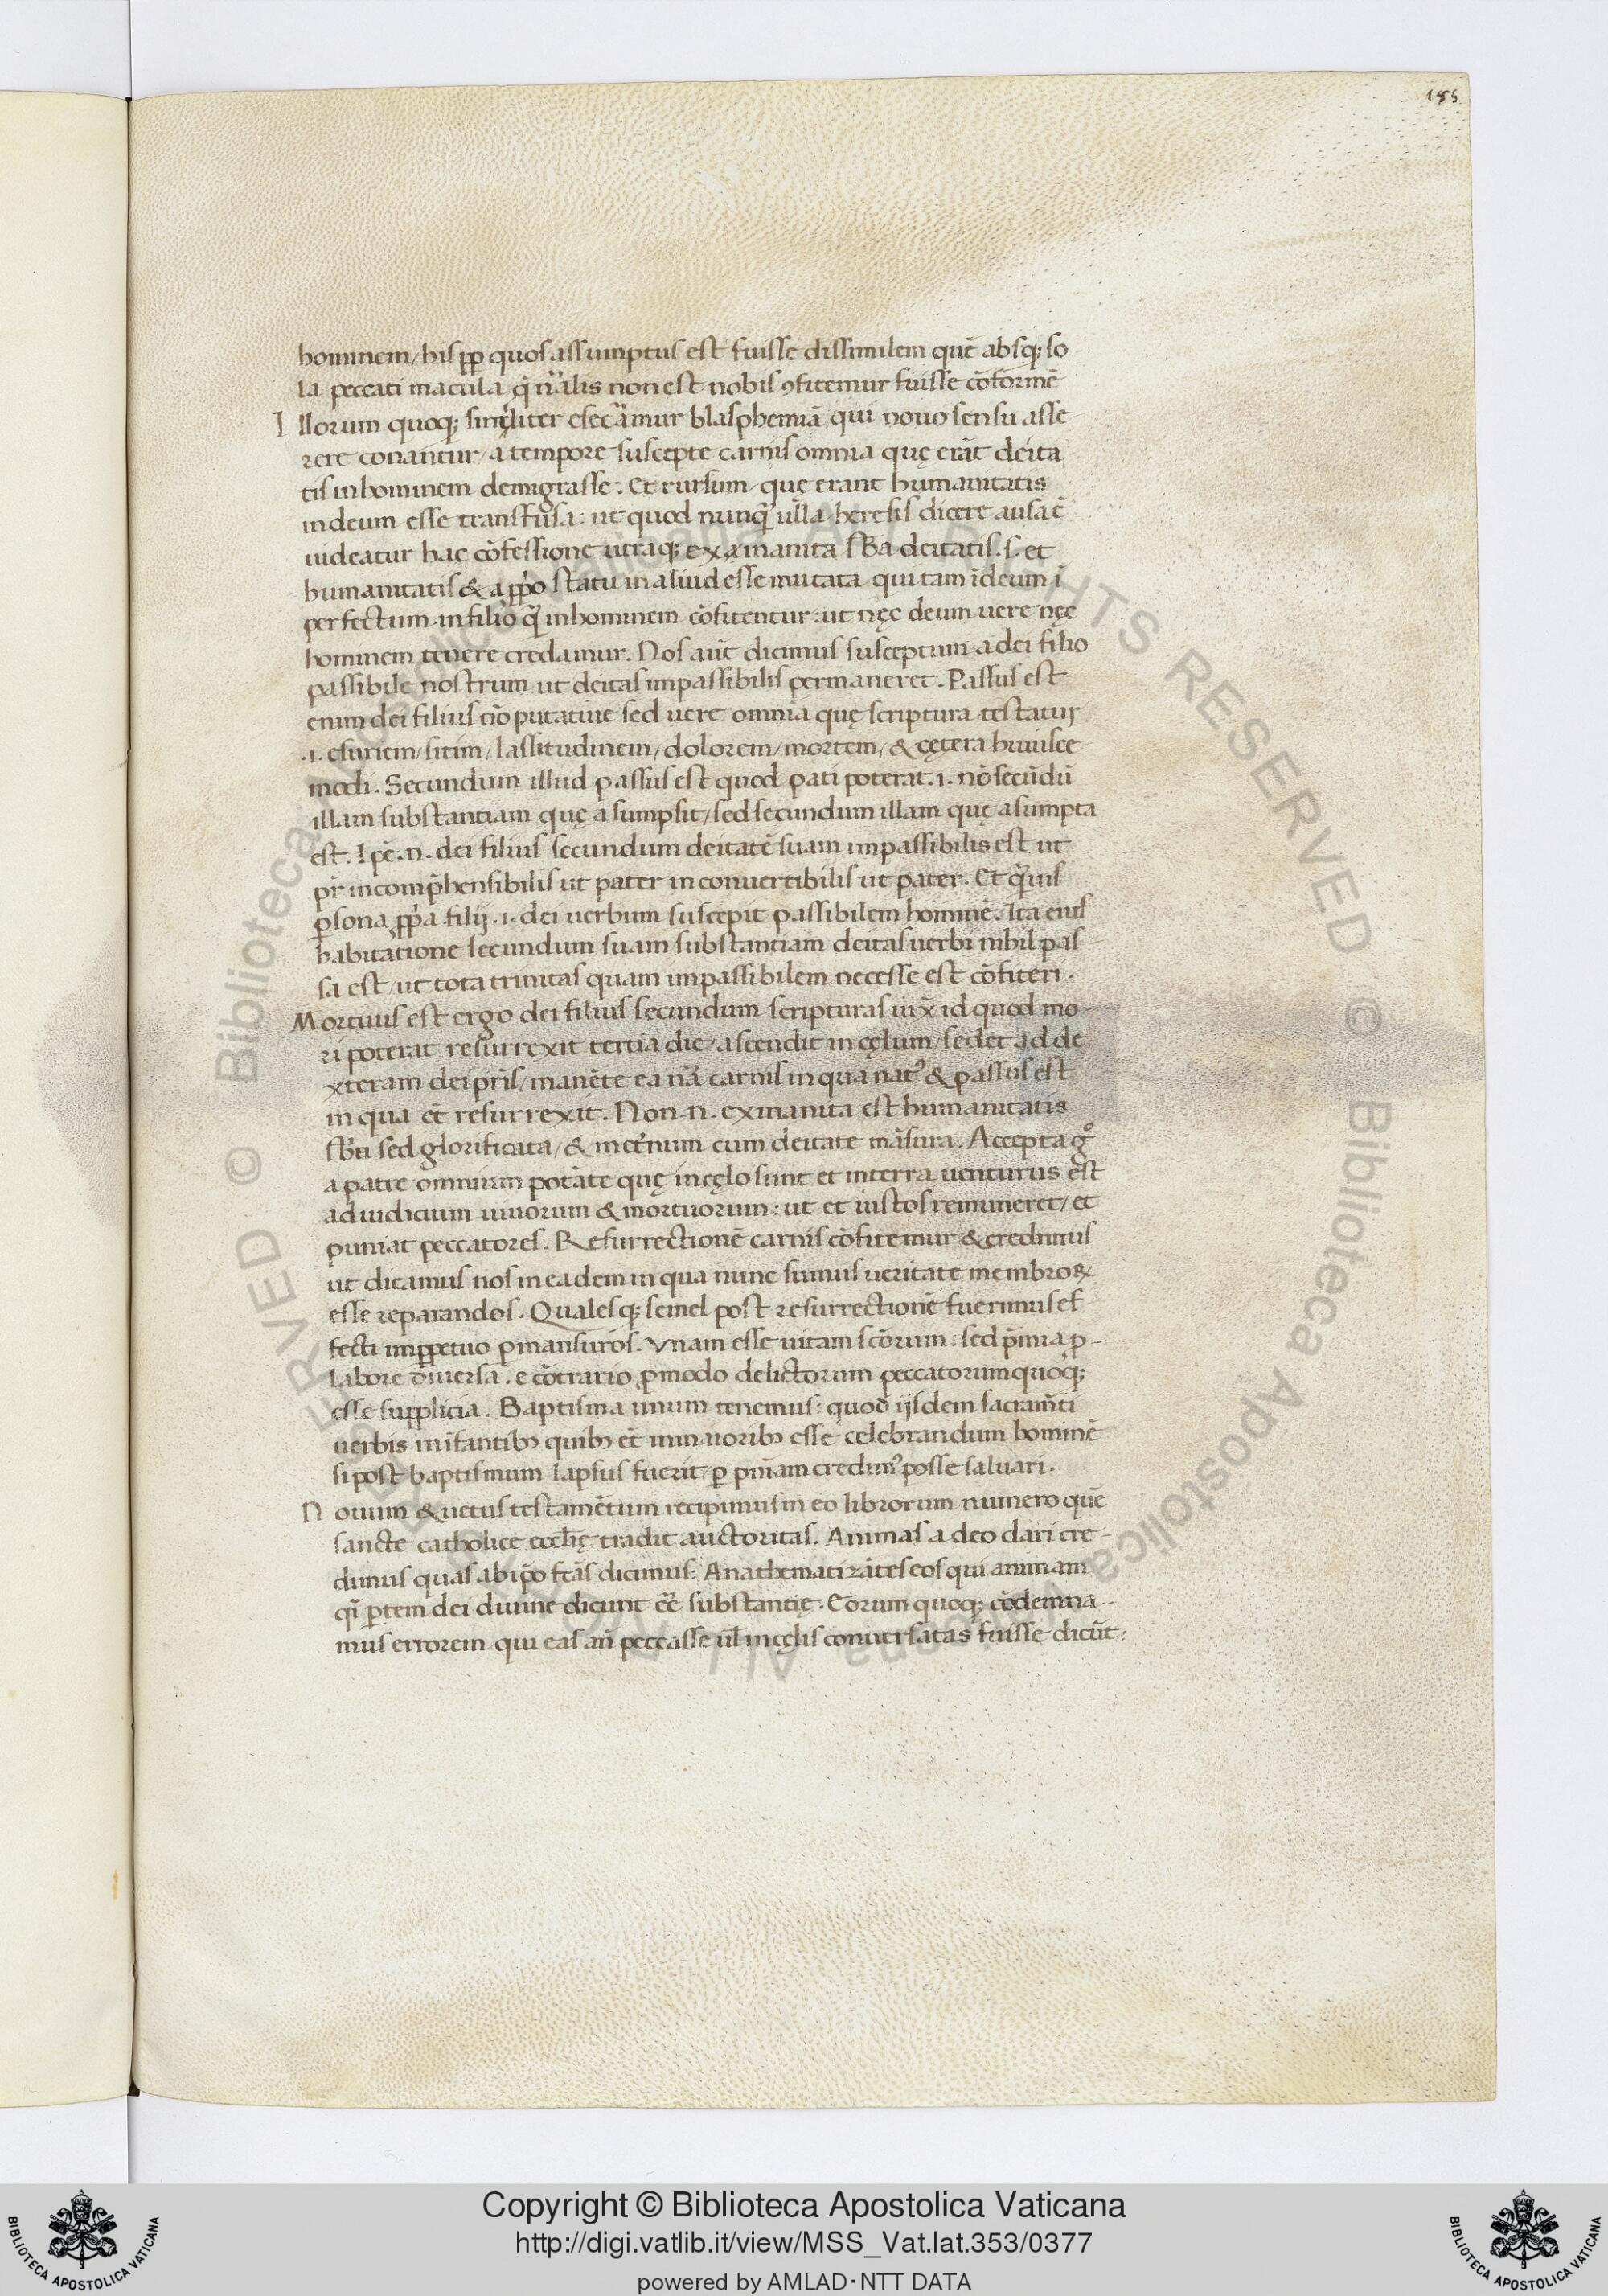 185
hominem/his ꝓp quos assumptus est fuisse dissimilem quē absq; so
la peccati macula q̄ nālis non est nobis ꝯfitemur fuisse cōformē
Illorum quoq; similiter execramur blasphemiā qui nouo sensu asse
rere conantur/a tempore suscepte carnis omnia quę erāt deita
tis in hominem demigrasse. Et rursum que erant humanitatis
in deum esse transfusa: ut quod nunq̄ ulla heresis dicere ausa ē
uideatur hac cōfessione utraq; exinanita sb̄a deitatis .s. et
humanitatis & a ꝓpo statu in aliud esse mutata qui tam īdeum ī
perfectum in filio q̄ in hominem cōfitentur: ut nęc deum uere nęc
hominem tenere credamur. Nos aūt dicimus susceptum a dei filio
passibile nostrum ut deitas impassibilis permaneret. Passus est
enim dei filius nō putatiue sed uere omnia quę scriptura testatur
.i. esuriem/sitim/lassitudinem/dolorem/mortem/& cętera huiusce
modi. Secundum illud passus est quod pati poterat .i. nō secūdū
illam substantiam quę asumpsit/sed secundum illam quę asumpta
est. Ipē .n. dei filius secundum deitatē suam impassibilis est ut
pr̄ incomp̄hensibilis ut pater inconuertibilis ut pater. Et q̄uis
ꝑsona ꝓpa filij .i. dei uerbum suscepit passibilem hominē. Ita eius
habitatione secundum suam substantiam deitas uerbi nihil pas
sa est/ut tota trinitas quam impassibilem necesse est cōfiteri.
Mortuus est ergo dei filius secundum scripturas iux̄ id quod mo-
ri poterat resurrexit tertia die/ascendit in cęlum/sedet ad de
xteram dei pr̄is/manēte ea nā carnis in qua natꝰ & passus est
in qua et̄ resurrexit. Non .n. exinanita est humanitatis
sb̄a sed glorificata/& ineternum cum deitate māsura. Accepta gͦ
a patre omnium potāte quę in cęlo sunt et in terra uenturus est
ad iudicium uiuorum & mortuorum: ut et iustos remuneret/et
puniat peccatores. Resurrectionē carnis cōfitemur & credimus
ut dicamus nos in eadem in qua nunc sumus ueritate membroꝝ
esse reparandos. Qualesq; semel post resurrectionē fuerimus ef
fecti imꝑpetuo ꝑmansuros. Vnam esse uitam scōrum: sed p̄mia ꝑ-
labore diuersa. e cōtrario ꝓ modo delictorum peccatorum quoq;
esse supplicia. Baptisma unum tenemus: quod ijsdem sacram̄ti
uerbis in infantibꝫ quibꝫ et̄ in maioribꝫ esse celebrandum hominē
si post baptismum lapsus fuerit/ꝑ pn̄iam credimꝰ posse saluari.
Nouum & uetus testamētum recipimus in eo librorum numero quē
sancte catholice ecclīę tradit auctoritas. Animas a deo dari cre-
dimus quas ab ip̄o fc̄as dicimus: Anathematizātes eos qui animam
q̄i ꝑtem dei diuine dicunt eē substantię. Eorum quoq; cōdemnā-
mus errorem qui eas an̄ peccasse ul̄ in cęlis conuersatas fuisse dicūt:
Copyright © Biblioteca Apostolica Vaticana
http://digi.vatlib.it/view/MSS_Vat.lat.353/0377
powered by AMLAD·NTT DATA